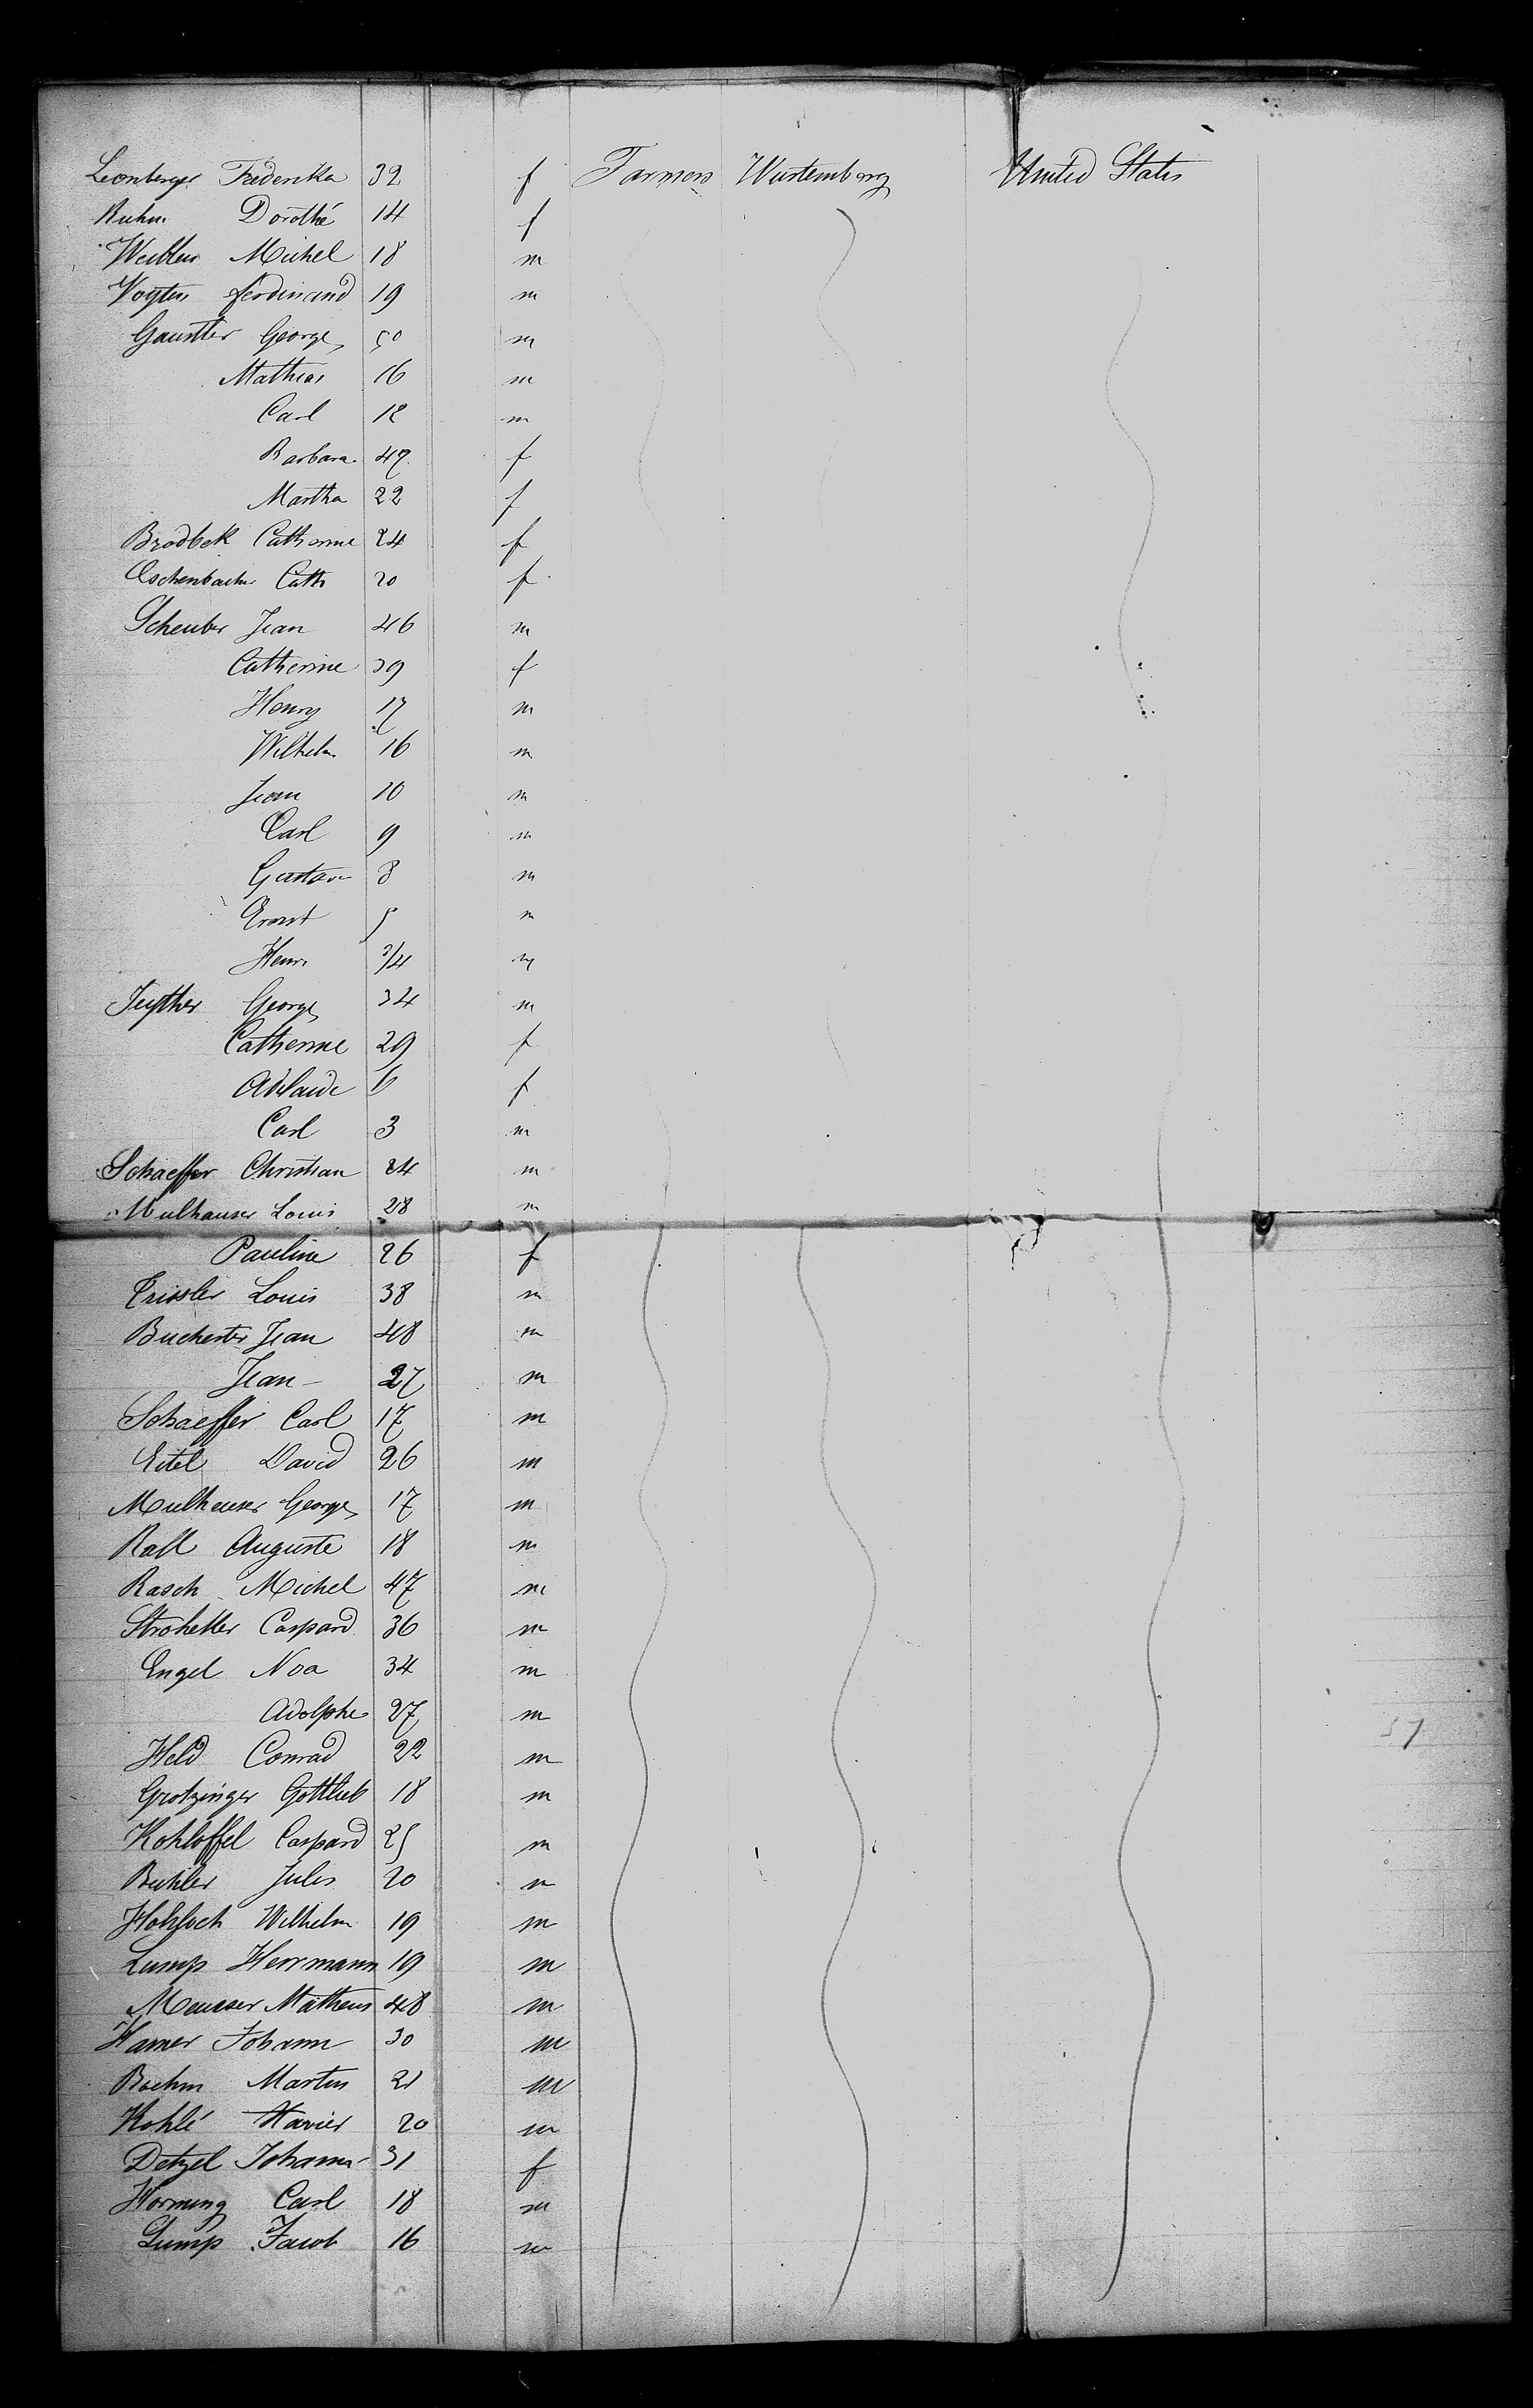 Leonberger Frederika 32 f Farmers Wurtemberg United States
Kuhn Dorothé 14 f
Michel 18 m
Ferdinand 19 m
George 50 m
Mathias 16 m
Carl 12 m
Barbara 47 f
Martha 22 f
Brodbek Catherine 24 f
Eschenbacher Cath 20 f
Scheuber Jean 46 m
Catherine 39 f
Henry 17 m
Wilhelm 16 m
Jean 10 m
Carl 9 m
Gustave 8 m
Ernst 5 m
Henri 3/4 m
George 34 m
Catherine 29 f
Adelaide 6 f
Carl 3 m
Schaeffer Christian 24 m
Mulhauser Louis 28 m
Pauline 26 f
Louis 38 m
Buchester Jean 48 m
Jean 27 m
Schaeffer Carl 17 m
Eitel David 26 m
Mulhauser George 17 m
Rall Auguste 18 m
Rasch Michel 47 m
Caspard 36 m
Engel Noa 34 m
Adolphe 27 m
Held Conrad 22 m
Grotzinger Gottlieb 18 m
Kohloffel Caspard 25 m
Buhler Jules 20 m
Hohloch Wilhelm 19 m
Lump Herrmann 19 m
Meusser Matheus 48 m
Hamer Johann 30 m
Boehm Martin 21 m
Kohlé Xavier 20 m
Detzel Johanna 31 f
Hornung Carl 18 m
Lump Jacob 16 m